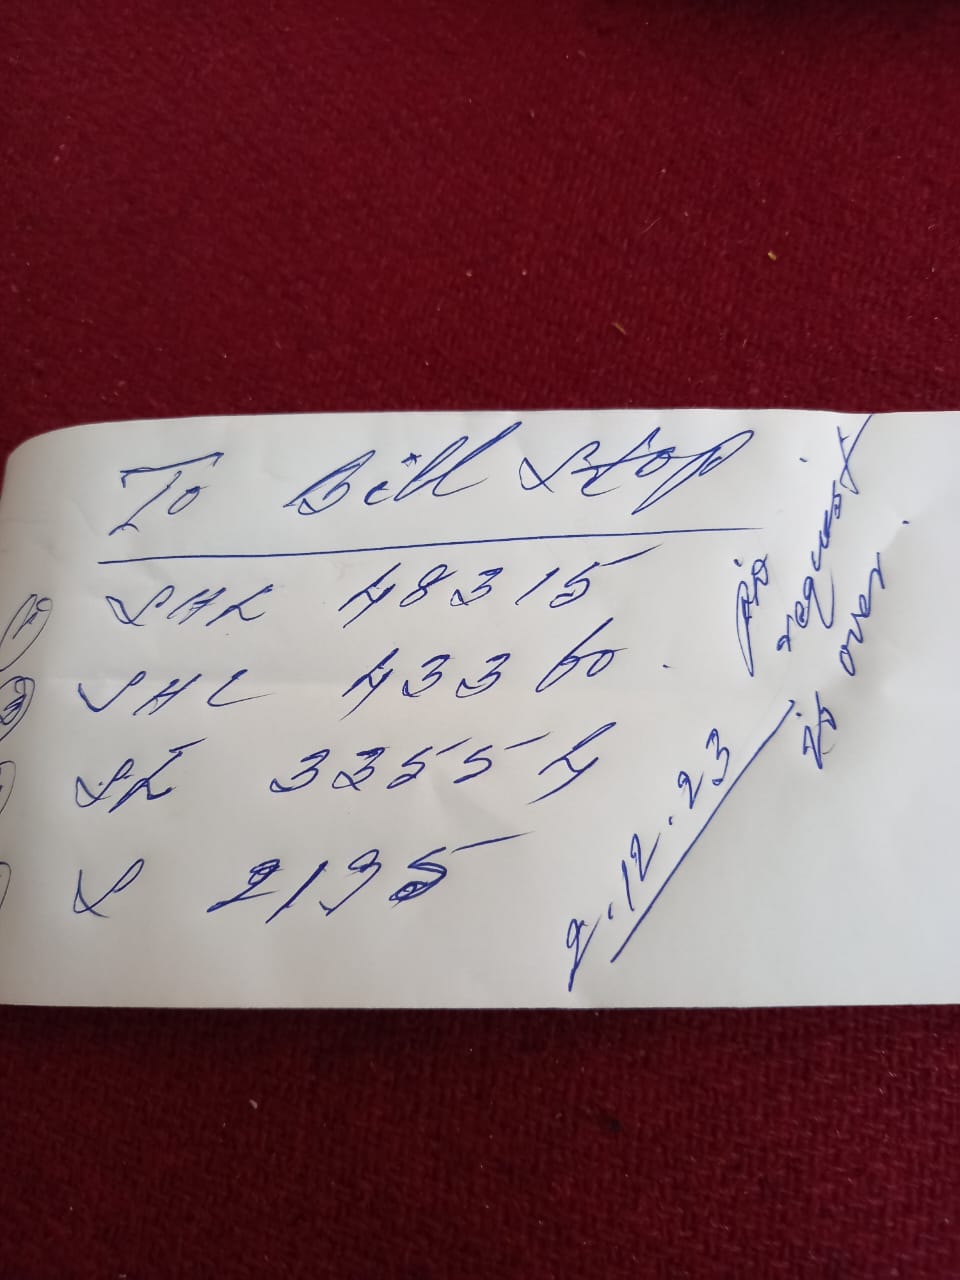 To Bill Stop
SHL 48315
SHL 43360
SL 33554
S 2135
request
is over.
9.12.23